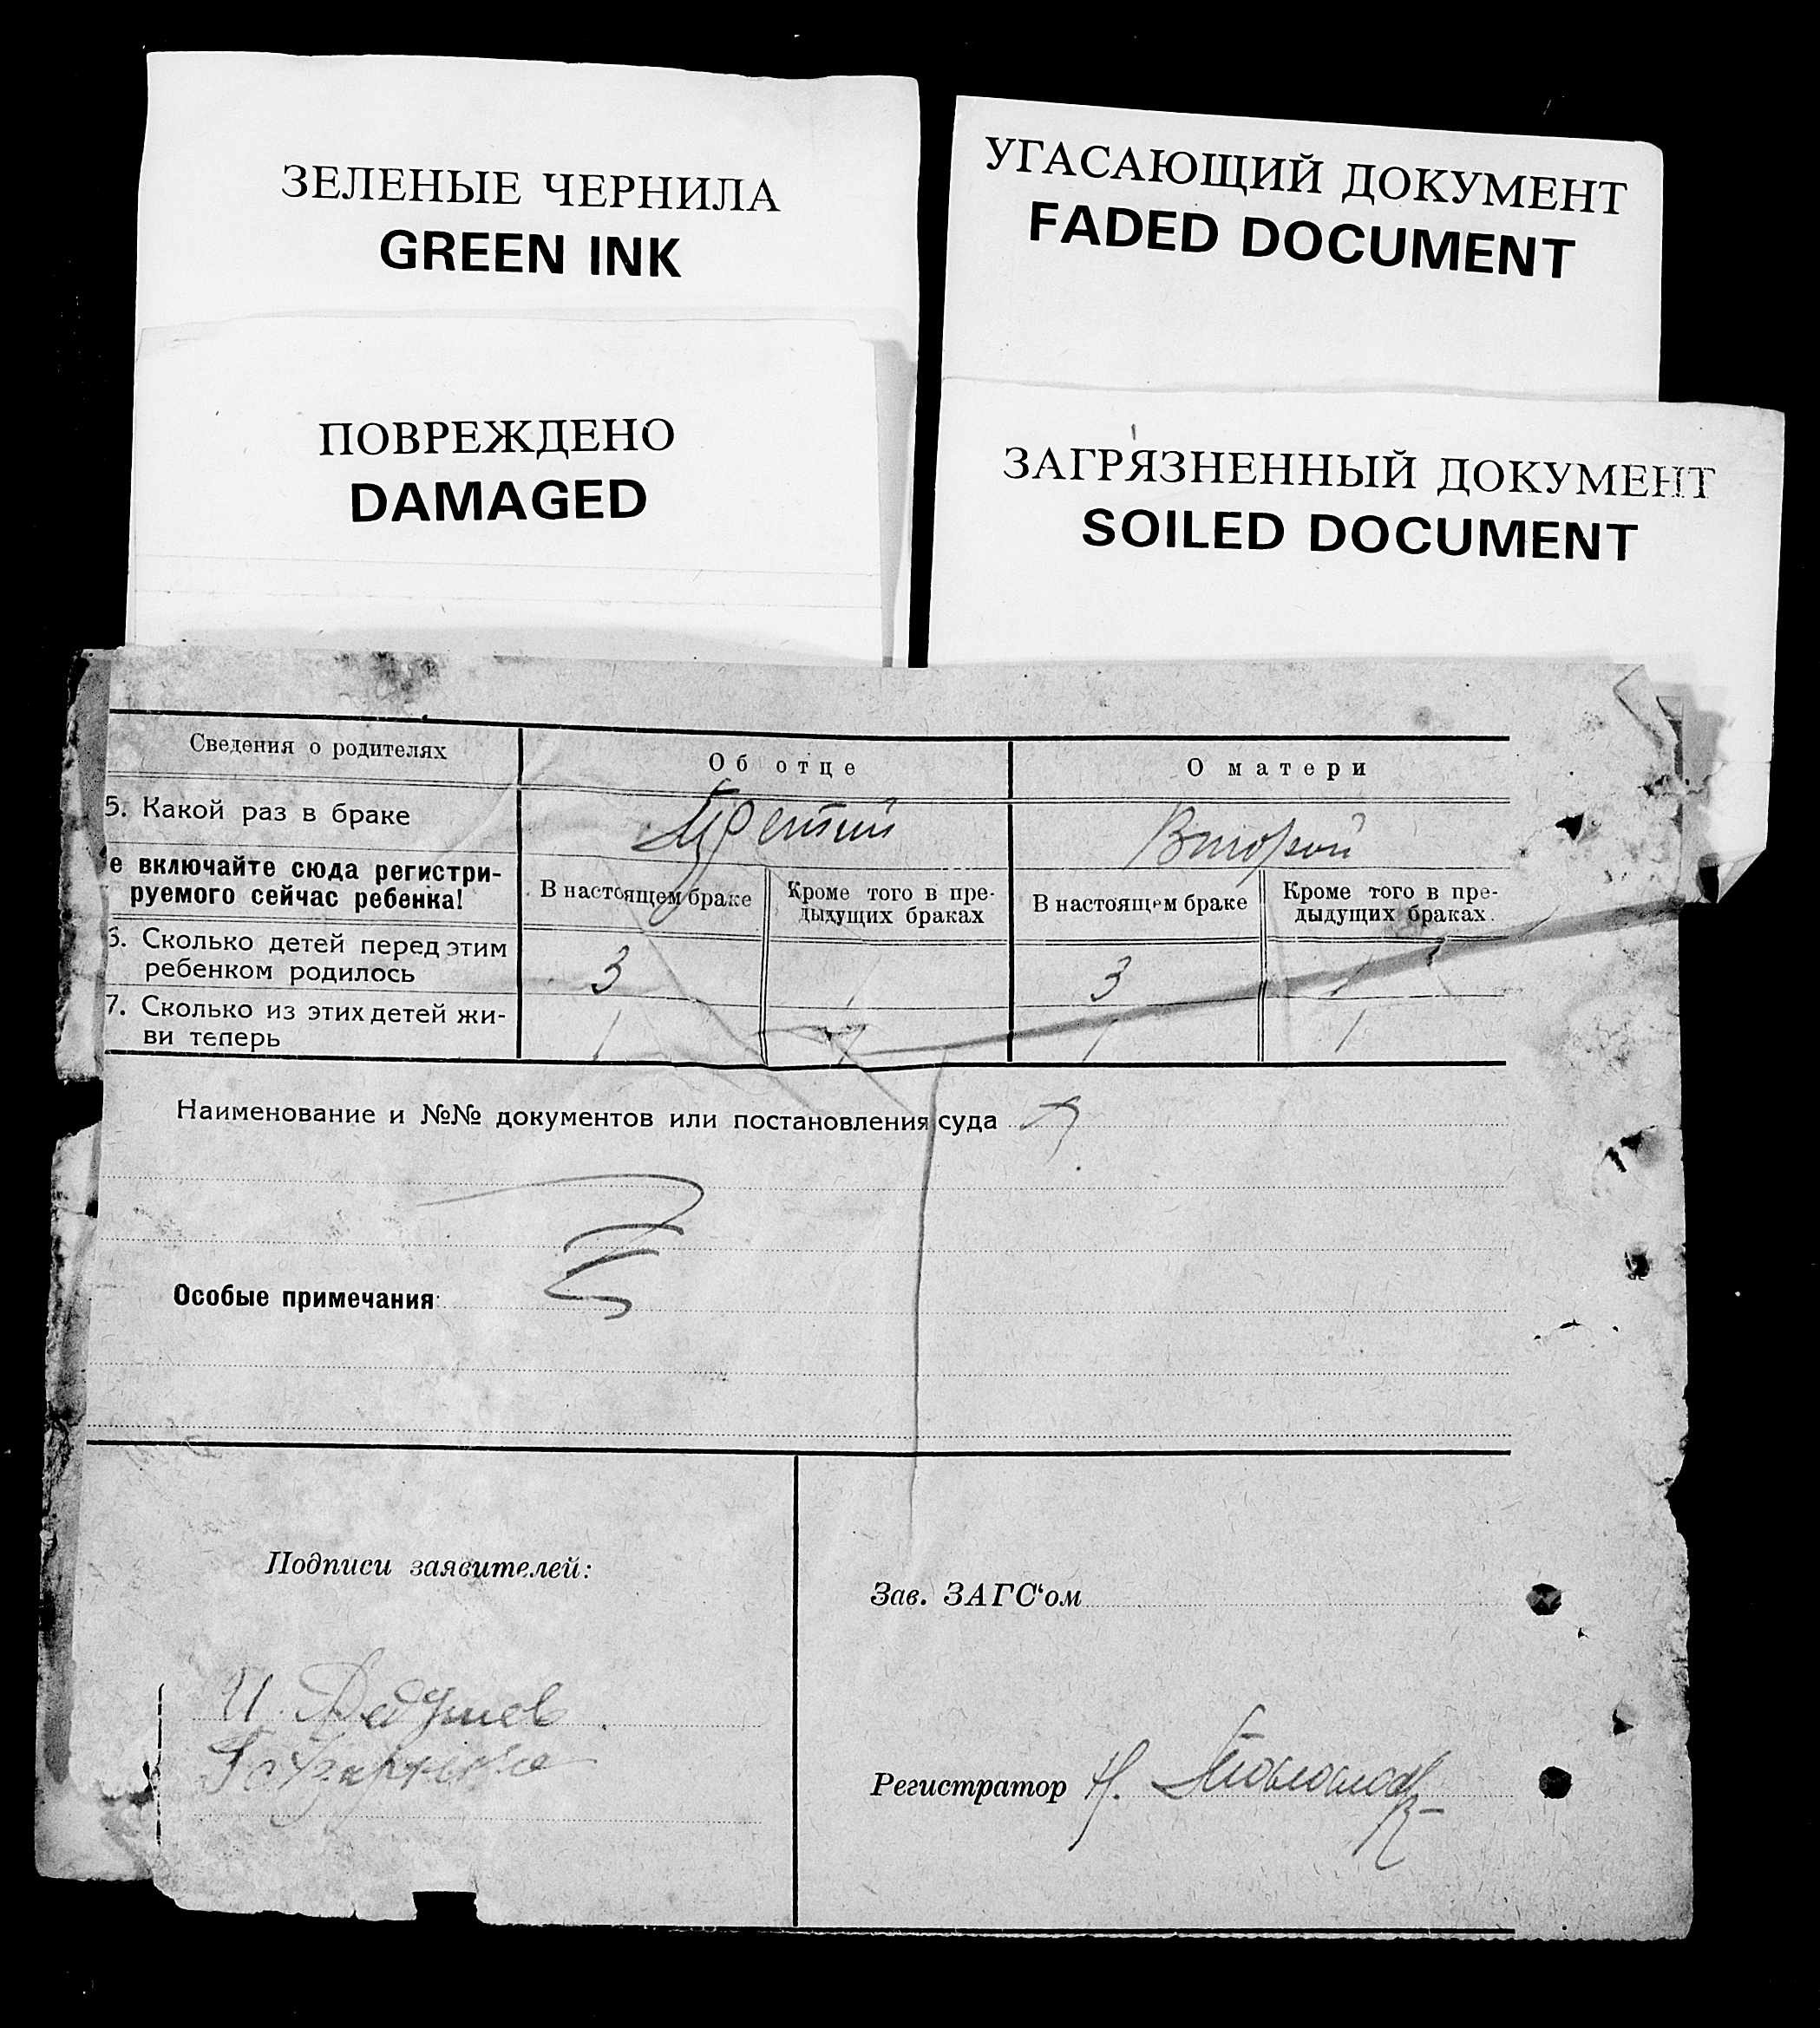 ЗЕЛЕНЫЕ ЧЕРНИЛА
GREEN INK
УГАСАЮЩИЙ ДОКУМЕНТ
FADED DOCUMENT
ПОВРЕЖДЕНО
DAMAGED
ЗАГРЯЗНЕННЫЙ ДОКУМЕНТ
SOILED DOCUMENT
Сведения о родителях
Об отце
О матери
5. Какой раз в браке
Третий
Второй
е включайте сюда регистри-
руемого сейчас ребенка!
В настоящем браке
Кроме того в пре-
дыдущих браках
В настоящем браке
Кроме того в пре-
дыдущих браках.
6. Сколько детей перед этим
ребенком родилось
3
1
3
1
7. Сколько из этих детей жи-
ви теперь
1
1
1
1
Наименование и №№ документов или постановления суда
Особые примечания:
Подписи заявителей:
И.
Зав. ЗАГС‘ом
Регистратор Н.